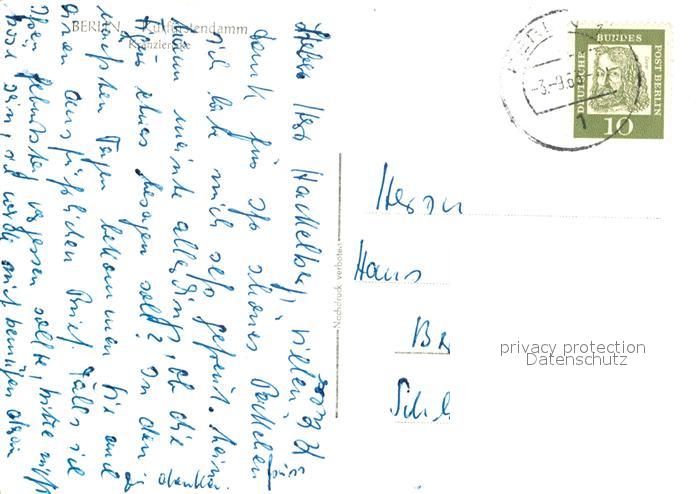 BERLIN, Kurfürstendamm
Kranzlerecke
Lieber Herr Hackelberg, vielen
Dank für Ihr schönes Päckchen
ich habe mich sehr gefreut. Kein
meinte allerdings, ob die
etwas besagen soll? In den
nächsten Tagen bekommen Sie auch
einen ausführlichen Brief. Falls ich
Ihren Geburtstag vergessen sollte, bitte nicht
böse sein, ich werde mich bemühen daran
zu denken.
Nachdruck verboten
DEUTSCHE BUNDESPOST BERLIN
10
-3.-9.6
1
Herrn
Hans
Br
Sch
privacy protection
Datenschutz